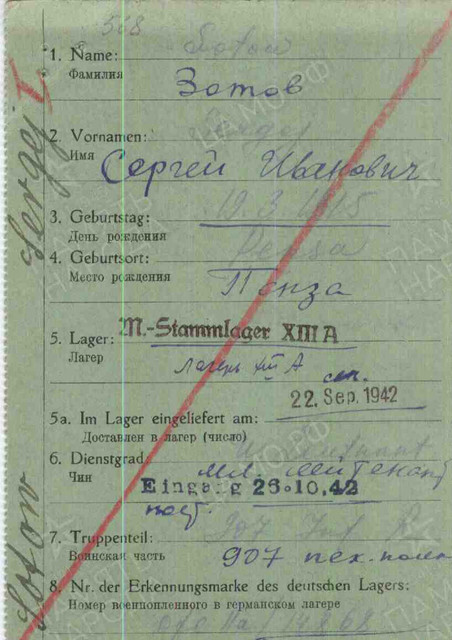 508
Sotow
1. Name:
Фамилия
Зотов
Sergej
2. Vornamen:
Имя
Сергей Иванович
3. Geburtstag:
День рождения
4. Geburtsort:
Pensa
Место рождения
Пенза
5. Lager:
M.-Stammlager XIII A
Лагерь
лагерь XIII A
22. Sep. 1942
5a. Im Lager eingeliefert am:
Доставлен в лагерь (число)
6. Dienstgrad:
Чин
мл. лейтенант
Eingang 26.10.42
7. Truppenteil:
907 Inf. R.
Воинская часть
907 пех. полк
8. Nr. der Erkennungsmarke des deutschen Lagers:
Номер военнопленного в германском лагере
Sotow Sergej